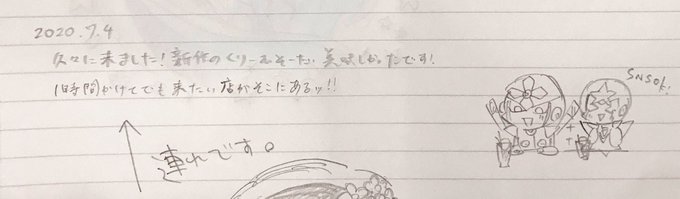 2020.7.4
久々に来ました!新作のくりーむそーだ、美味しかったです!
1時間かけてでも来たい店がそこにあるッ!!
SNSOK!
連れです。